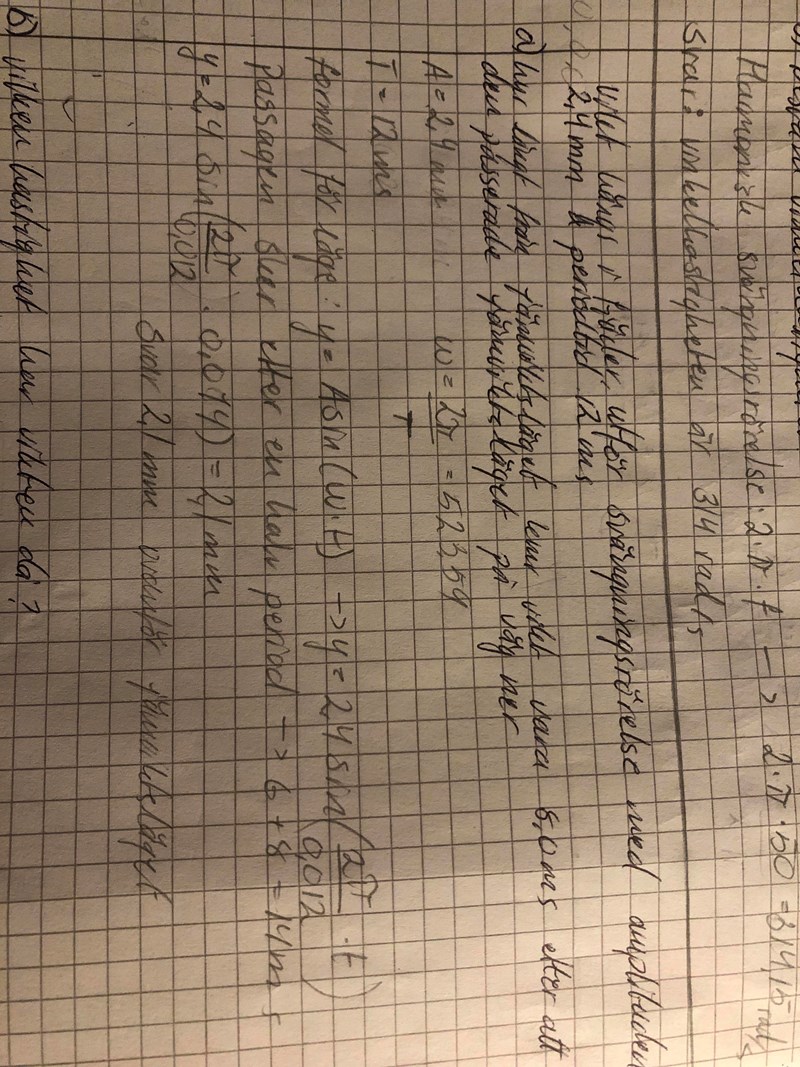 Harmonisk svängningsrörelse: 2·π·f → 2·π·50 = 314,15 rad/s
Svar: vinkelhastigheten är 314 rad/s
vikt hängs i fjäder, utför svängningsrörelse med amplituden
2,4 mm & periodtid 12 ms
a) hur långt från jämviktsläget kmr vikt vara 8,0 ms efter att
den passerade jämviktsläget på väg ner
A = 2,4 mm ω = 2π/T = 523,59
T = 12 ms
formel för läge: y = A sin(ω·t) → y = 2,4 sin(2π/0,012 · t)
Passagen sker efter en halv period → 6 + 8 = 14 ms
y = 2,4 sin(2π/0,012 · 0,014) = 2,1 mm
Svar 2,1 mm ovanför jämviktsläget
b) vilken hastighet har vikten då?